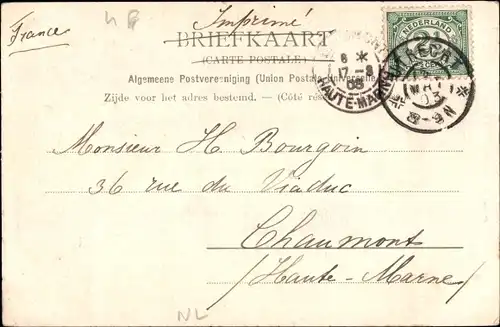 Imprimé
France
BRIEFKAART
(CARTE POSTALE)
Algemeene Postvereeniging (Union Postale Universelle)
Zijde voor het adres bestemd. — (Côté
NEDERLAND
6 *
17-8
03
HAUTE-MARNE
UTRECHT
03
8-9N
Monsieur H. Bourgoin
36 rue du Viaduc
Chaumont
(Haute-Marne)
NL